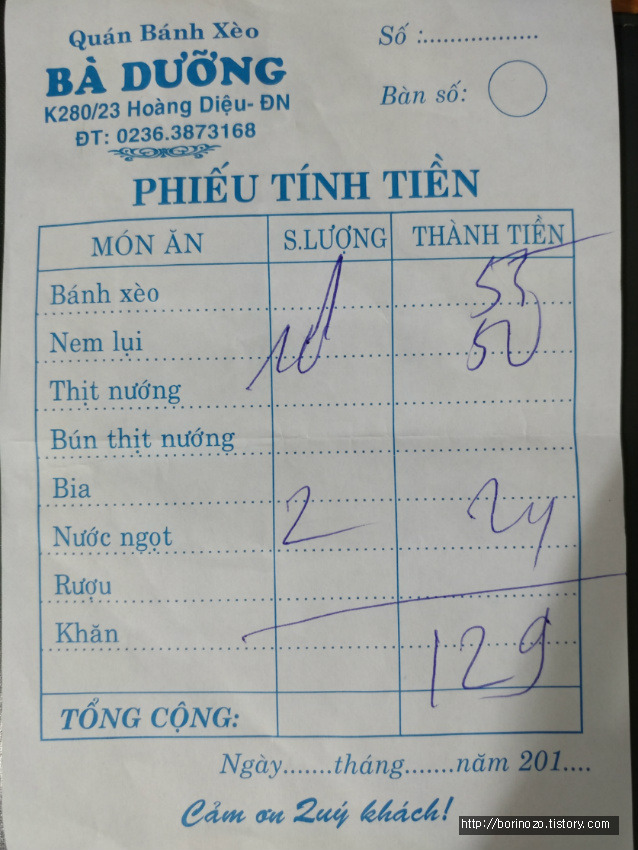 Quán Bánh Xèo
BÀ DƯỠNG
K280/23 Hoàng Diệu- ĐN
ĐT: 0236.3873168
Số :..................
Bàn số:
PHIẾU TÍNH TIỀN
MÓN ĂN S.LƯỢNG THÀNH TIỀN
Bánh xèo 55
Nem lụi 50
Thịt nướng
Bún thịt nướng
Bia
Nước ngọt 2 24
Rượu
Khăn
129
TỔNG CỘNG:
Ngày.......tháng.......năm 201....
Cảm ơn Quý khách!
http://borinozo.tistory.com